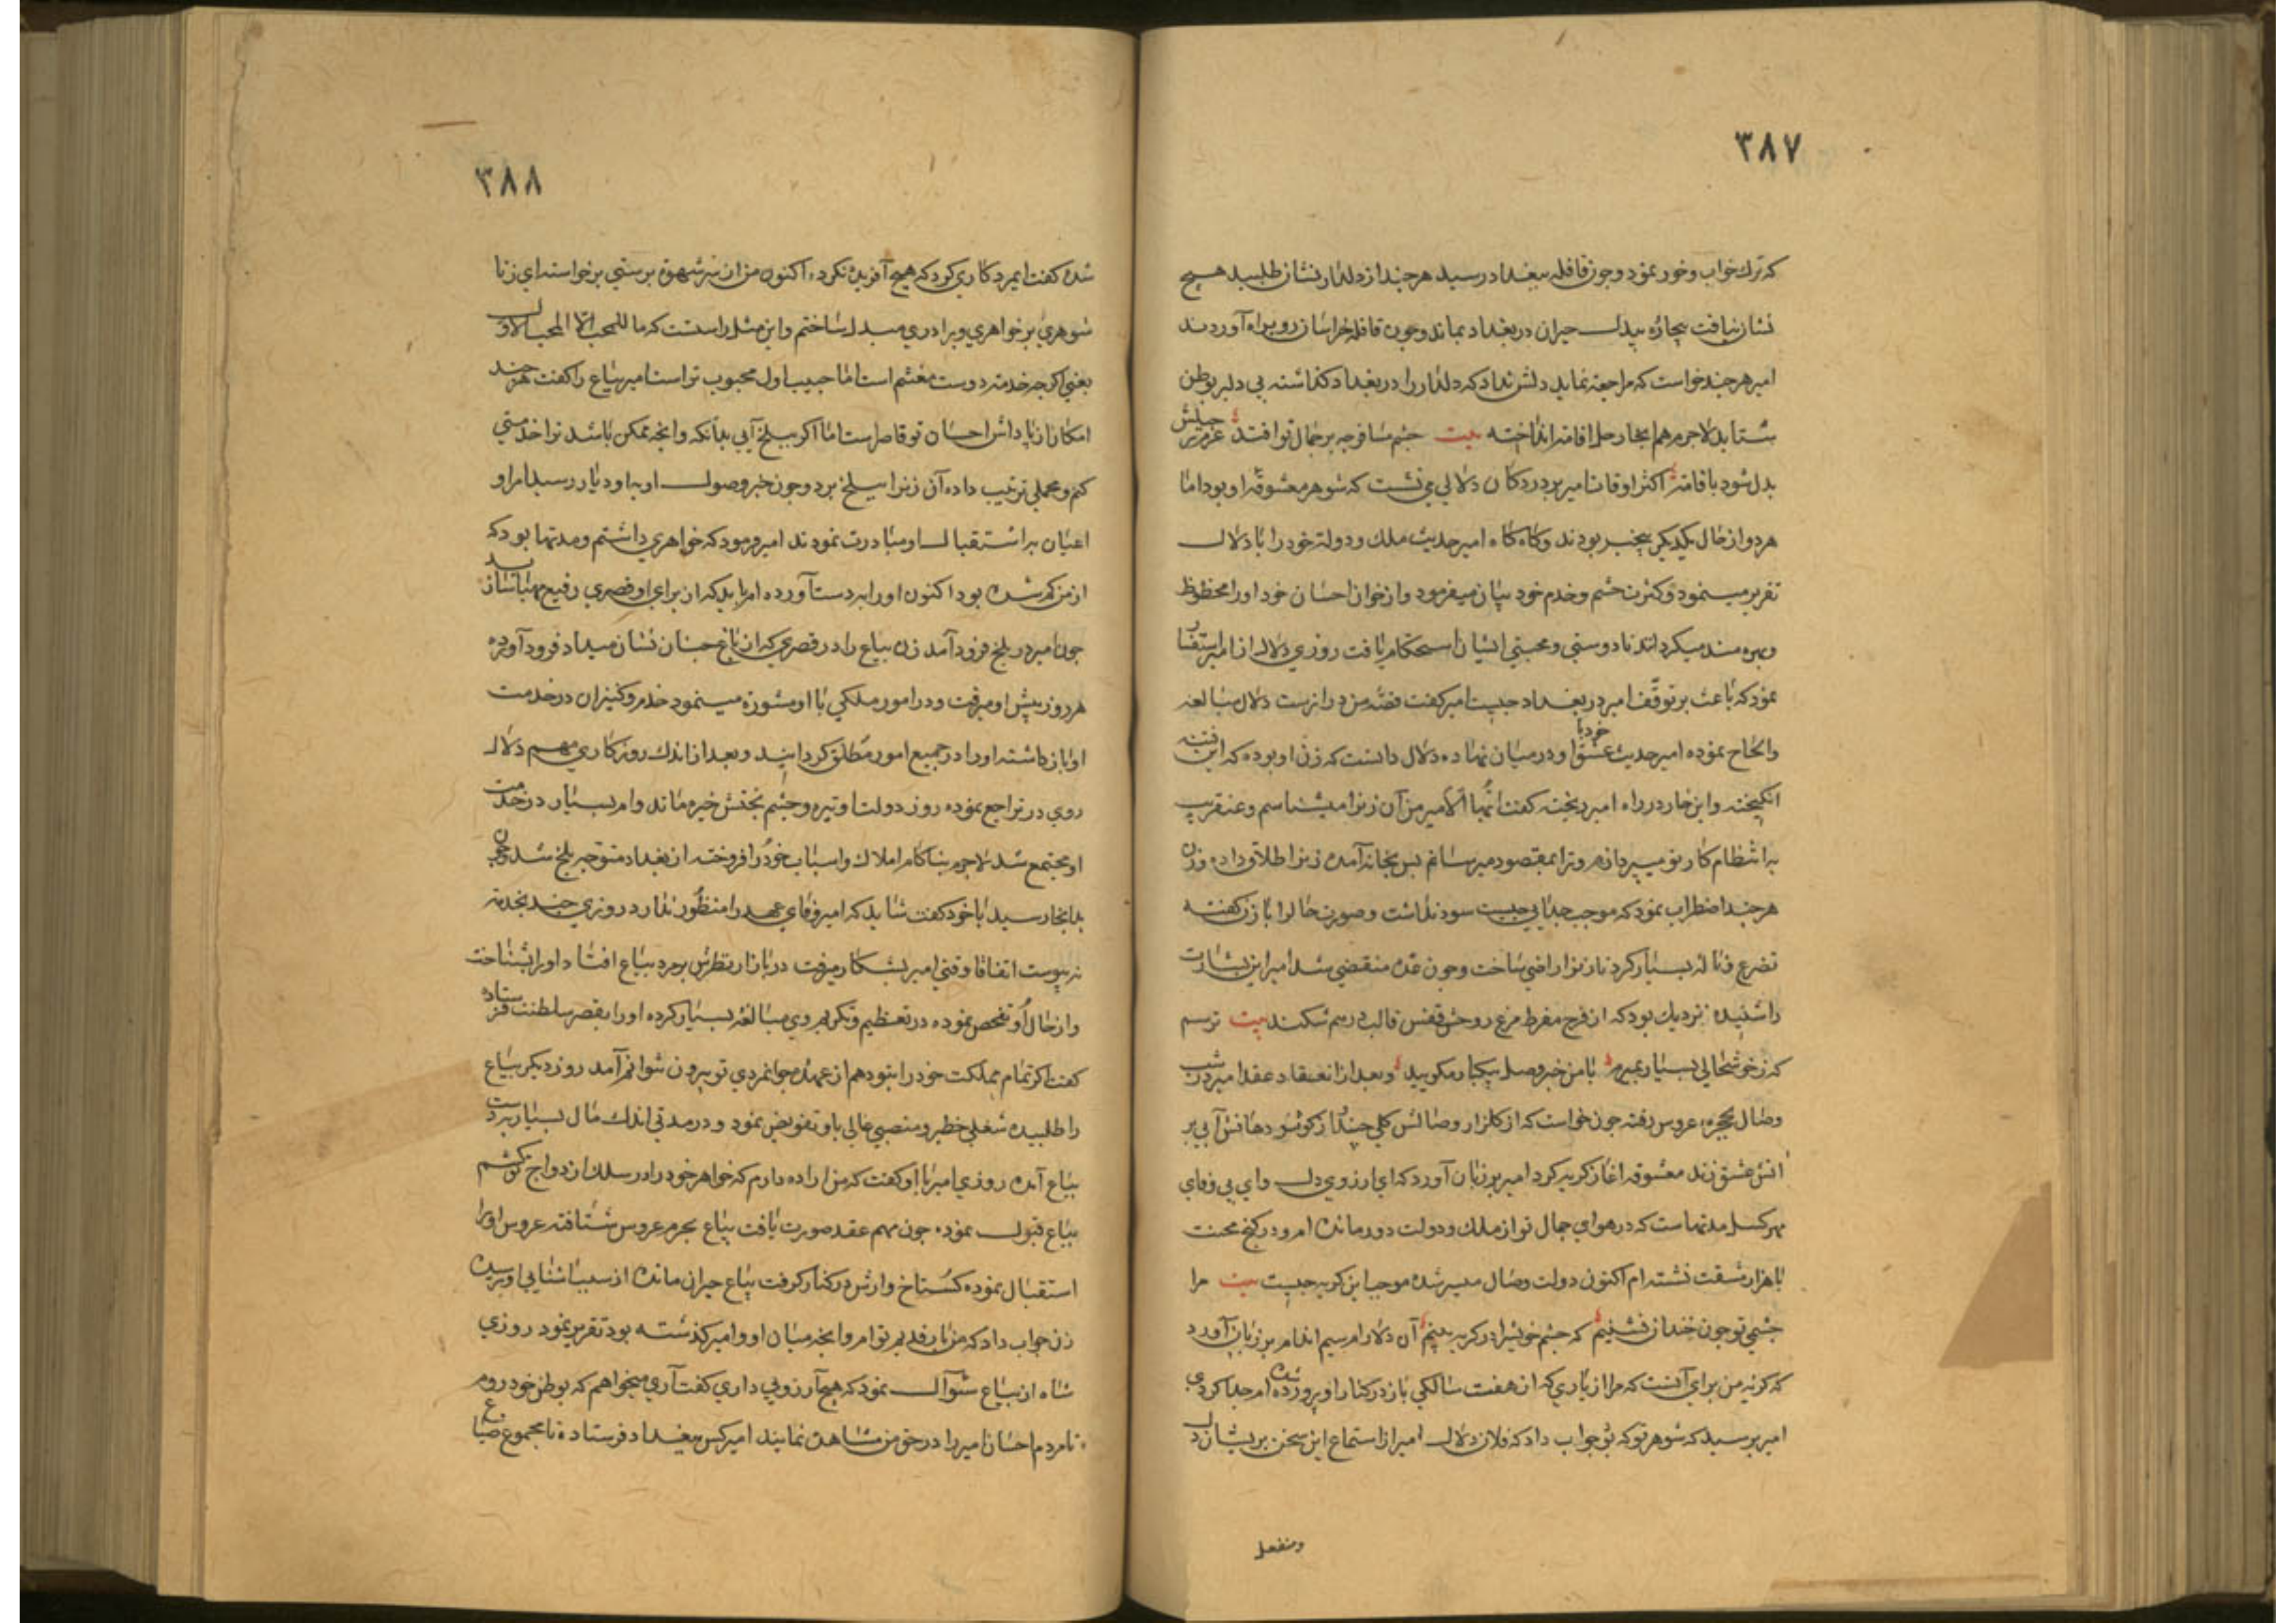 ٣٨٧
که ترك خواب و خور نمود و چون قافله ببغداد رسید هرچند از دلدار نشان طلبید هیچ
نشان نیافت بیچاره بیدل حیران در بغداد بماند و چون قافله خراسان رو براه آوردند
امیر هرچند خواست که مراجعه نماید دلش نداد که دلدار را در بغداد کذاشته بی دلبر بوطن
شتابد لاجرم هم انجا رحل اقامة انداخته بیت چشم مسافر چه بر جمال تو افتد عزم رحیلش
بدل شود باقامة اکثر اوقات امیر بر در دکان دلالی می نشست که شوهر معشوقه او بود اما
هر دو از حال یکدیکر بیخبر بودند و کاه کاه امیر حدیث ملك و دولة خود را با دلال
تقریر مینمود و کثرت حشم و خدم خود بیان میفرمود و از خوان احسان خود او را محظوظ
و بهره مند میکردانند تا دوستی و محبتی ایشان استحکام یافت روزی دلال از امیر استفسار
نمود که باعث بر توقف امیر در بغداد چیست امیر کفت قصه من درازست دلال مبالغه
و الحاح نموده امیر حدیث عشق خود با او در میان نهاده دلال دانست که زن او بوده که این فتنه
انکیخته و این خار در راه امیر ریخته کفت ایها الامیر من آن زنرا میشناسم و عنقریب
به انتظام کار تو میپردازم و ترا بمقصود میرسانم پس بخانه آمده زنرا طلاق داده و زن
هرچند اضطراب نمود که موجب جدایی چیست سود نداشت و صورت حال را با زن کفته
تضرع و ناله بسیار کرد تا زنرا راضی ساخت و چون عده منقضی شد امیر این بشارت
را شنیده نزدیك بود که از فرح مفرط مرغ روحش قفس قالب درهم شکند بیت ترسم
که ز خوشحالی بسیار بمیرم با من خبر وصل بیکبار مکویید و بعد از انعقاد عقد امیر در شب
وصال بحجره عروس رفته چون خواست که از کلزار وصالش کلی چند از کوشه دهانش آبی بر
اتش عشق زند معشوقه اغاز کریه کرد امیر بر زبان آورد که ای ارزوی دل و ای بی وفای
مهر کسل مدتهاست که در هوای جمال تو از ملك و دولت دور مانده ام و در کنج محنت
با هزار مشقت نشسته ام اکنون دولت وصال میسر شده موجب این کریه چیست بیت مرا
چشمی تو چون خندان نشینم که چشم خویش را در کریه بینم آن دلارام سیم اندام بر زبان آورد
که کریه من برای آنست که مرا از یاری که از هفت سالکی باز در کنار او پرورده شده ام جدا کردی
امیر پرسید که شوهر تو که بو جواب داد که فلان دلال امیر از استماع این سخن پریشان دل
و منفعل
٣٨٨
شده کفت ایمرد کاری کرد که هیچ آفریده نکرده اکنون من از سر شهوة پرستی برخواسته ای زنا
شوهری بر خواهری و برادری مبدل ساختم و این مثل راست که ما للحب الا المحب الاول
یعنی اکرچه خدمة دوست مغتنم است اما حبیب اول محبوب تر است امیر بیاع را کفت هرچند
امکان از پاداش احسان تو قاصر است اما اکر ببلخ آیی بدانکه و انچه ممکن باشد ترا خدمتی
کنم و محملی ترتیب داده آن زنرا ببلخ برد و چون خبر وصول او به او دیار رسید امرا و
اعیان به استقبال او مبادرت نمودند امیر فرمود که خواهری داشتم و مدتها بود که
از من کم شده بود اکنون او را بدست آورده ام باید که از برای او قصری رفیع مهیا سازید
چون امیر در بلخ فرود آمد زن بیاع را در قصری که از باغ جنان نشان میداد فرود آورده
هر روز پیش او میرفت و در امور ملکی با او مشورة مینمود خدم و کنیزان در خدمت
او باز داشته او را در جمیع امور مطلق کردانید و بعد از اندك روزکاری مهم دلال
روی در تراجع نموده روز دولت او تیره و چشم بختش خیره ماند وام بسیار در خدمت
او مجتمع شد لاجرم بناکام املاك و اسباب خود را فروخته از بغداد متوجه بلخ شد و چون
بدانجا رسید با خود کفت شاید که امیر وفای عهد را منظور ندارد روزی چند بخدمة
نه پیوست اتفاقا وقتی امیر بشکار میرفت در بازار نظرش بر مرد بیاع افتاد او را بشناخت
و از حال او تفحص نموده در تعظیم و تکریم وی مبالغه بسیار کرده او را بقصر سلطنت فرستاده
کفت اکر تمام مملکت خود را بتو دهم از عهده جوانمردی تو بیرون نتوانم آمد روز دیکر بیاع
را طلبیده شغلی خطیر و منصبی عالی باو تفویض نمود و در مدتی اندك مال بسیار بدست
بیاع آمده روزی امیر با او کفت که من اراده دارم که خواهر خود را در سلك ازدواج تو کشم
بیاع قبول نموده چون مهم عقد صورت یافت بیاع بحرم عروس شتافته عروس او را
استقبال نموده کستاخ وارش در کنار کرفت بیاع حیران مانده از سبب اشنایی او پرسیده
زن جواب داد که من یار قدیم توام و انچه میان او و امیر کذشته بود تقریر نمود روزی
شاه از بیاع سؤال نمود که هیچ آرزویی داری کفت آری میخواهم که بوطن خود روم
تا مردم احسان امیر را در حق من مشاهده نمایند امیر کس ببغداد فرستاده تا مجموع ضیاع